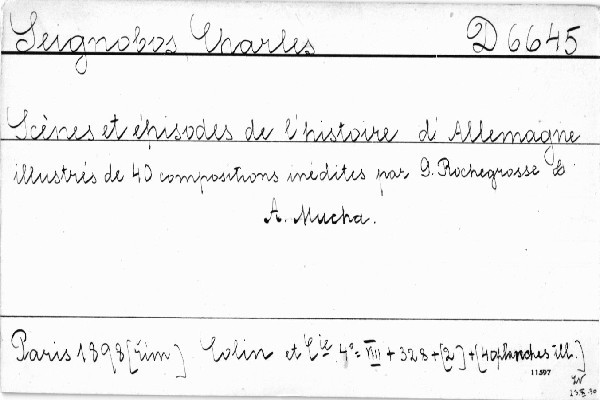 Seignobos Charles D 6645
Scènes et épisodes de l'histoire d'Allemagne
illustrés de 40 compositions inédites par G. Rochegrosse &
A. Mucha.
Paris 1898 [] Colin et Cie 4° = VIII + 328 + [2] + [40 planches ill.]
11597